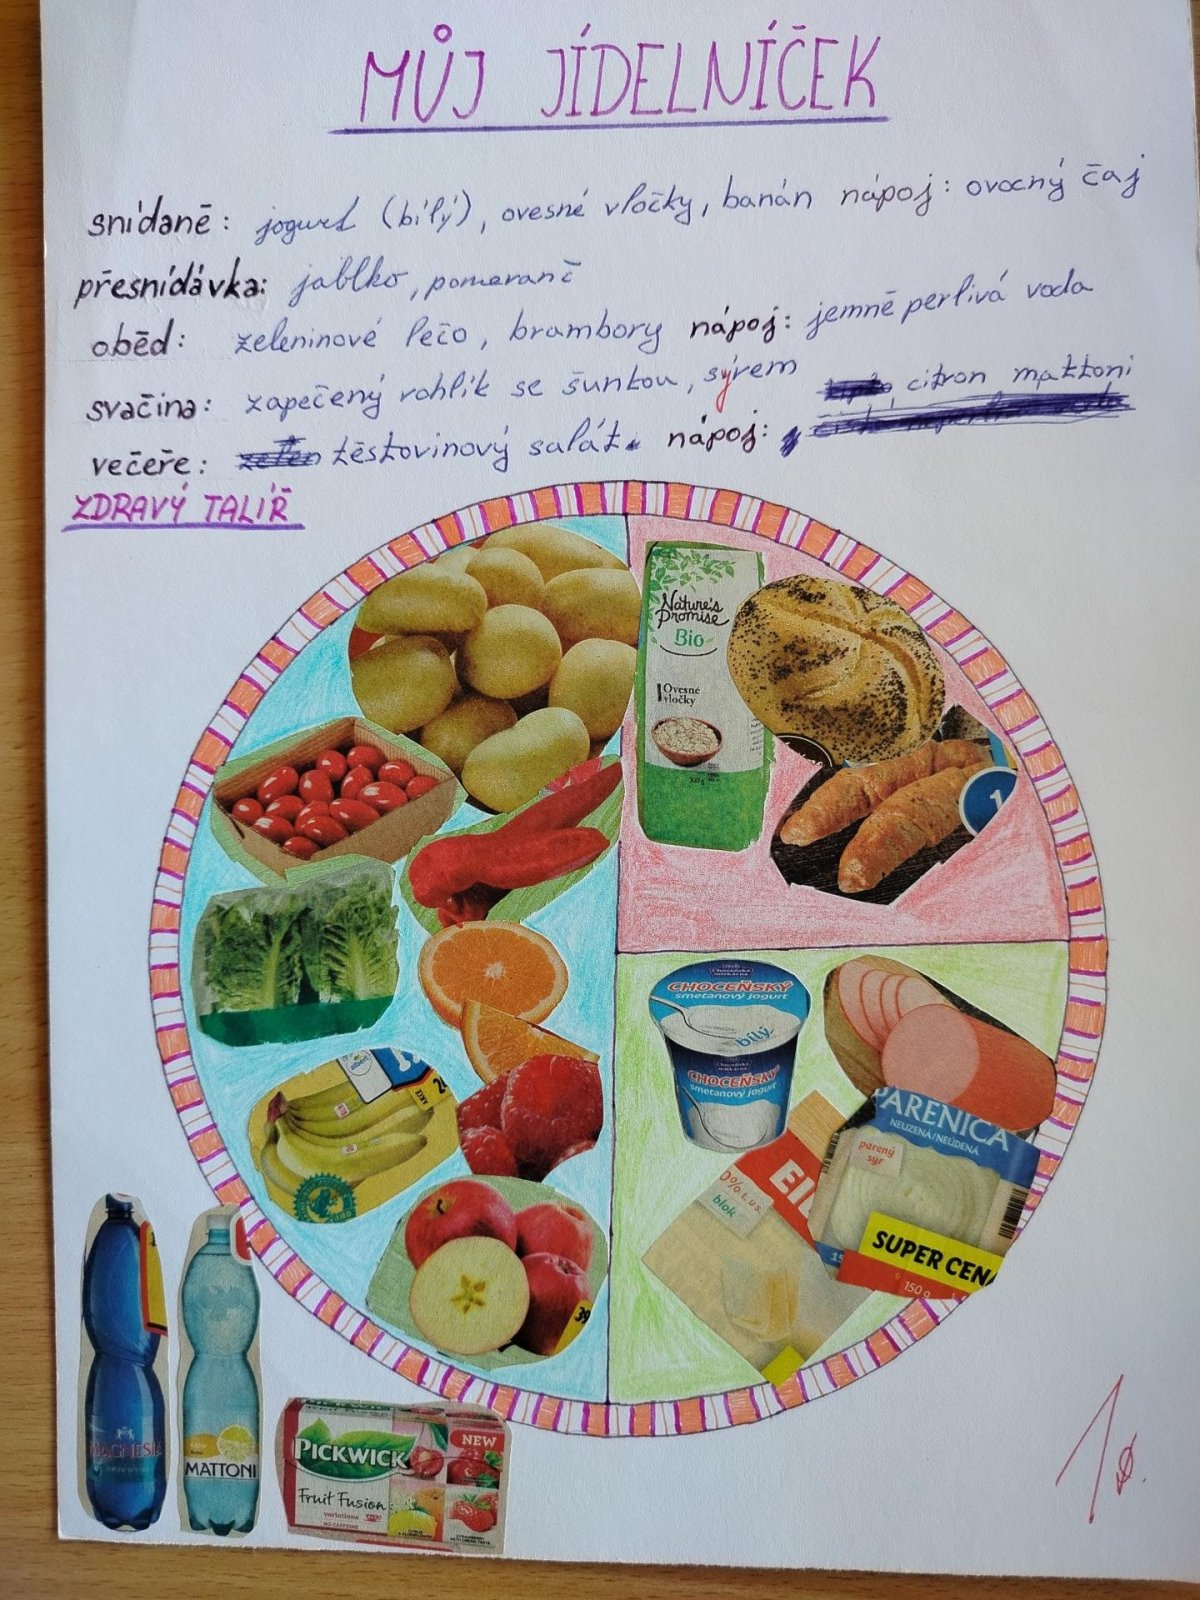 MŮJ JÍDELNÍČEK
snídaně: jogurt (bílý), ovesné vločky, banán nápoj: ovocný čaj
přesnídávka: jablko, pomeranč
oběd: zeleninové lečo, brambory nápoj: jemně perlivá voda
svačina: zapečený rohlík se šunkou, sýrem
večeře: těstovinový salát. nápoj: citron mattoni
ZDRAVÝ TALÍŘ
Nature's Promise
Bio
Ovesné vločky
1
CHOCEŇSKÝ
smetanový jogurt
bílý
CHOCEŇSKÝ
smetanový jogurt
PARENICA
NEUZENÁ/NEÚDENÁ
pařený sýr
0% t.v.s.
blok
SUPER CENA
150 g
albert
AKCE
39
MAGNESIA
MATTONI
PICKWICK
NEW
Fruit Fusion
variations
NO CAFFEINE
1